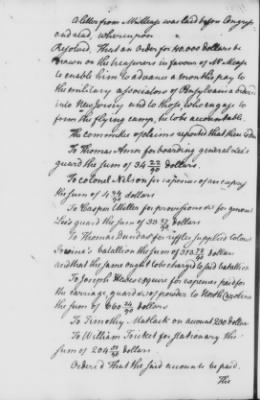 A letter from Mr Mease was laid before Congress
and read, whereupon
Resolved, That an order for 40,000 dollars be
drawn on the treasurers in favour of Mr Mease
to enable him to advance a months pay to
the military associators of Pensylvania ordered
into New Jersey and to those who engage to
form the flying camp, he to be accountable.
The committee of claims reported that there is due
To Thomas for boarding general Lee's
guard the sum of 34 22/90 dollars.
To colonel Nelson for expences of an express
the sum of 4 dollars
To Caspar for provisions for general
Lee's guard the sum of 33 dollars
To Thomas Dundas for riffles supplied colonel
Irwine's batallion the sum of dollars
and that the same ought to be charged to said batallion
To Joseph Hewes esquire for expences paid for
the carriage, guard &c of powder to North Carolina
the sum of 660 dollars
To Timothy Matlack on account 200 dollars
To William Tricket for stationary the
sum of 204 dollars.
Ordered That the said accounts be paid.
The